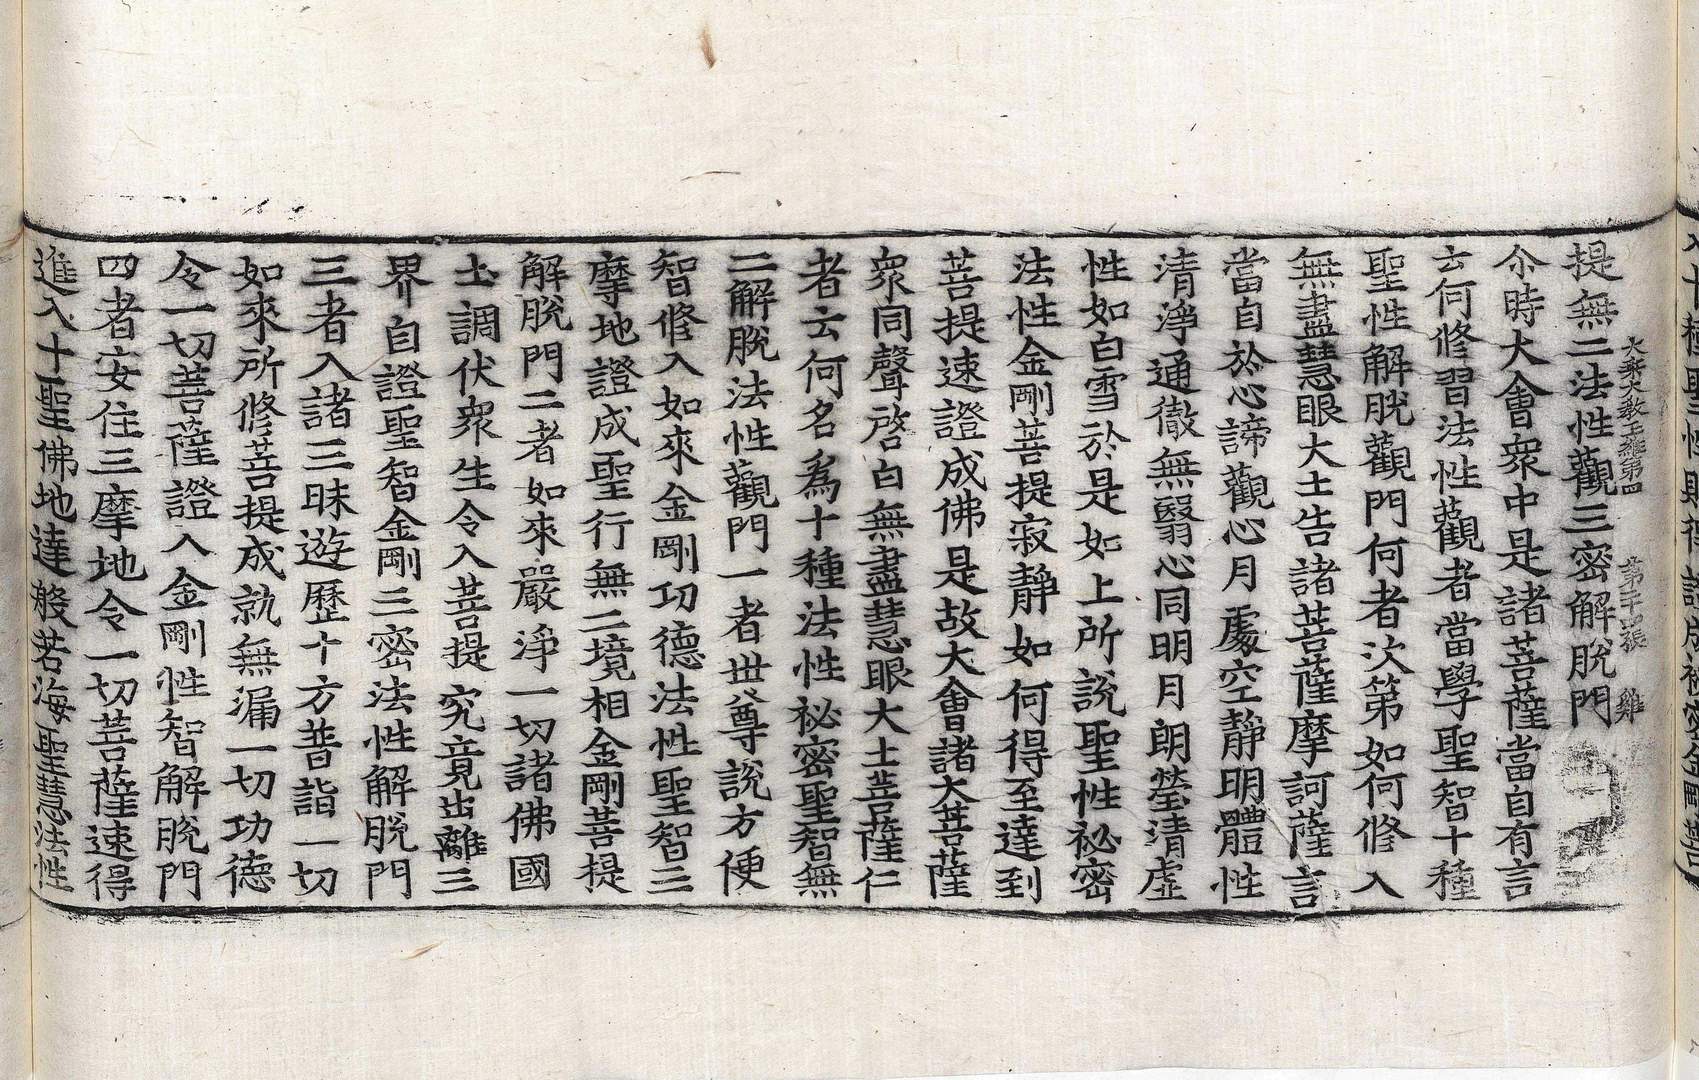 大乘大教王経第四 第二十四張 雞
提無二法性觀三密解脫門
尒時大會衆中是諸菩薩當自有言
云何修習法性觀者當學聖智十種
聖性解脫觀門何者次第如何修入
無盡慧眼大士告諸菩薩摩訶薩言
當自於心諦觀心月處空靜明體性
清淨通徹無翳心同明月朗瑩清虛
性如白雪於是如上所說聖性祕密
法性金剛菩提寂靜如何得至達到
菩提速證成佛是故大會諸大菩薩
衆同聲啓白無盡慧眼大士菩薩仁
者云何名為十種法性祕密聖智無
二解脫法性觀門一者世尊說方便
智修入如來金剛功德法性聖智三
摩地證成聖行無二境相金剛菩提
解脫門二者如來嚴淨一切諸佛國
土調伏衆生令入菩提究竟出離三
界自證聖智金剛三密法性解脫門
三者入諸三昧遊歷十方普詣一切
如來所修菩提成就無漏一切功德
令一切菩薩證入金剛性智解脫門
四者安住三摩地令一切菩薩速得
進入十聖佛地達般若海聖慧法性